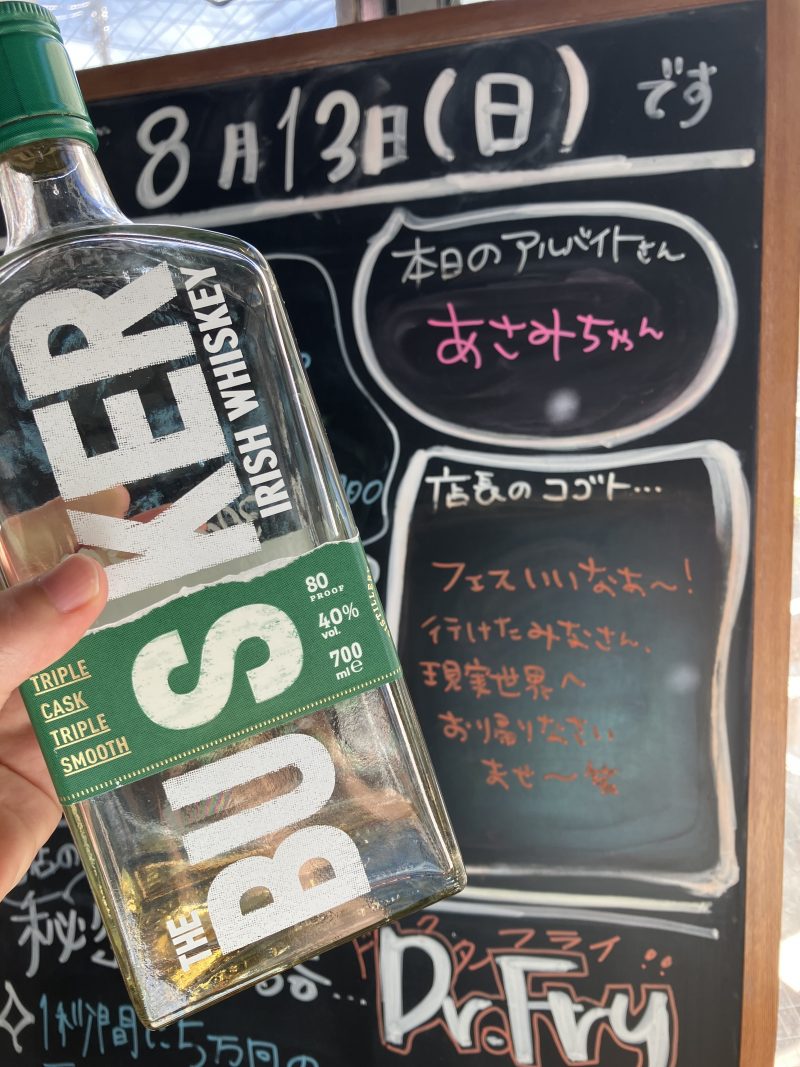 8月13日(日)です
本日のアルバイトさん
あさみちゃん
店長のコゴト…
フェスいいなあ〜!
行けたみなさん、
現実世界へ
おり帰りなさい
ませ〜笑
THE BUSKER
IRISH WHISKEY
80
PROOF
40%
vol.
700
ml e
TRIPLE
CASK
TRIPLE
SMOOTH
00
店の
秘
ドクターフライ
Dr.Fry
1秒間に5万回の